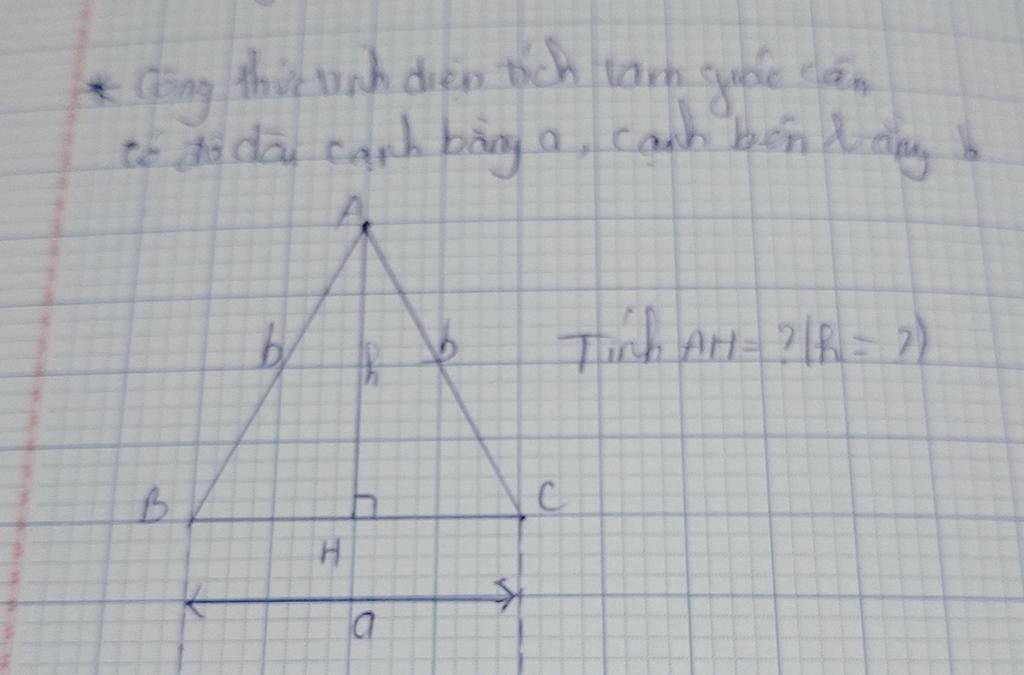 * Công thức tính diện tích tam giác cân
có độ dài cạnh bằng a, cạnh bên bằng b
A
b
h
b
Tính AH = ? (h = ?)
B
C
H
a